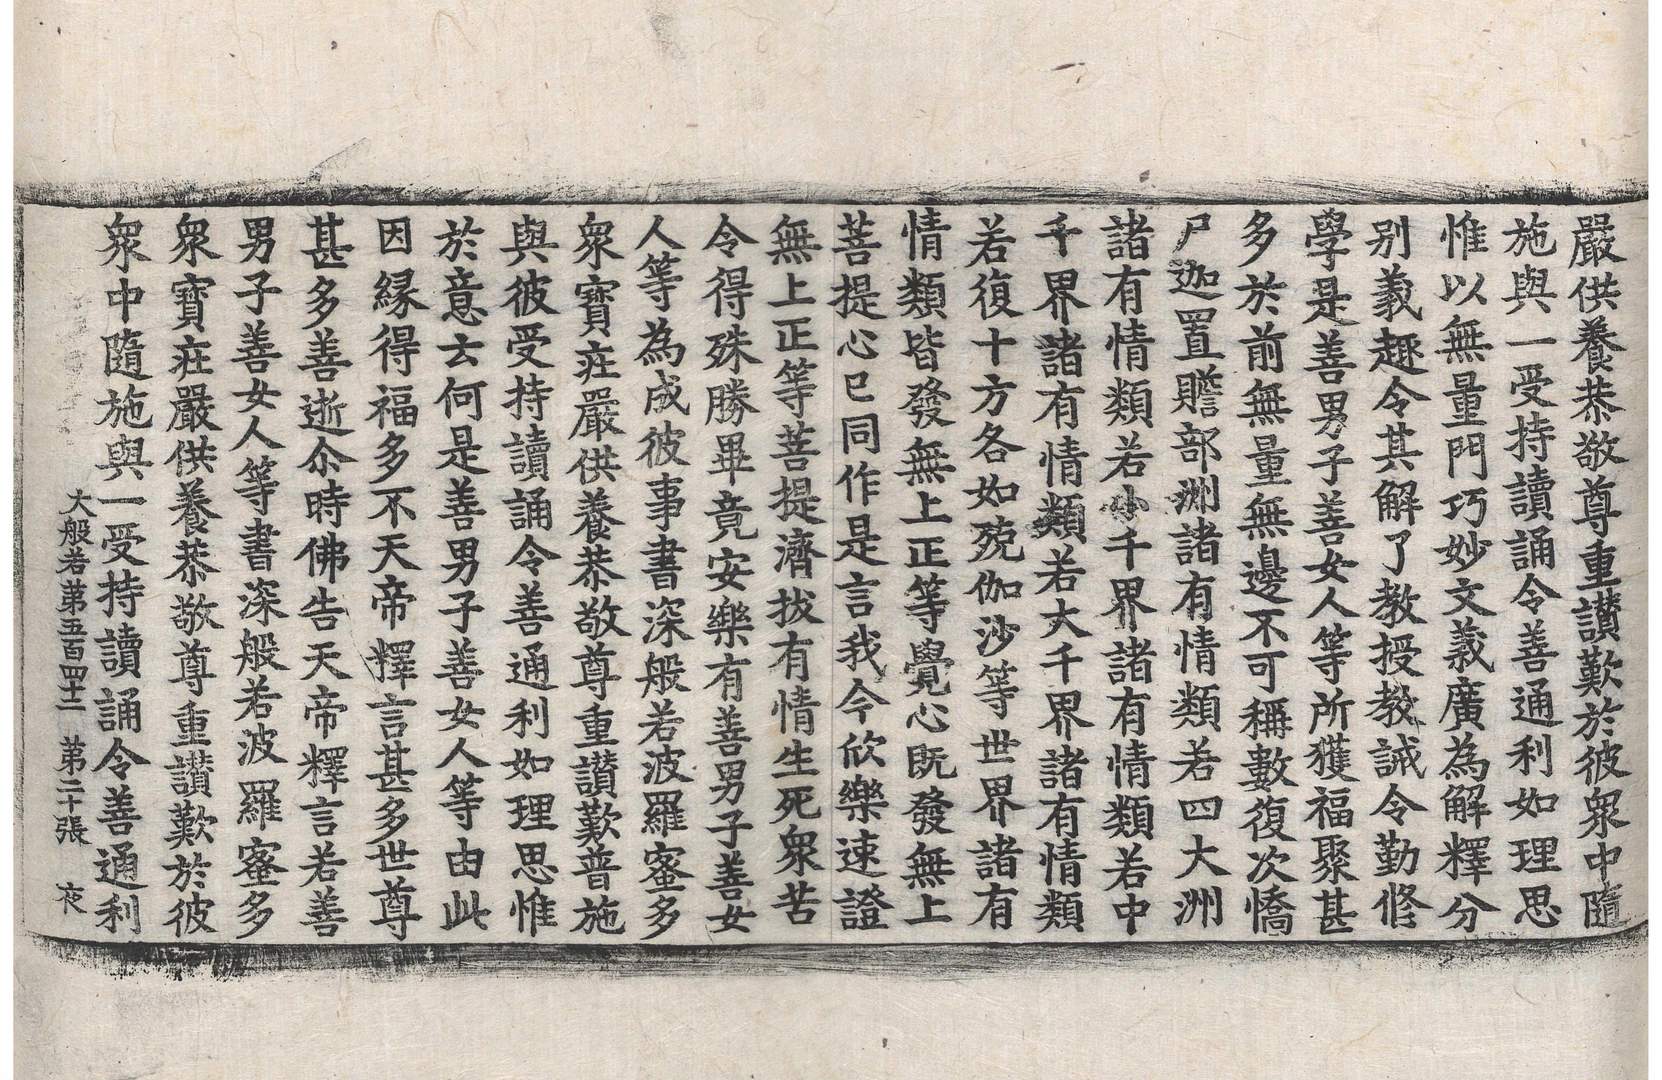 嚴供養恭敬尊重讃歎於彼衆中隨
施與一受持讀誦令善通利如理思
惟以無量門巧妙文義廣為解釋分
别義趣令其解了教授教誡令勤修
學是善男子善女人等所獲福聚甚
多於前無量無邊不可稱數復次憍
尸迦置贍部洲諸有情類若四大洲
諸有情類若小千界諸有情類若中
千界諸有情類若大千界諸有情類
若復十方各如殑伽沙等世界諸有
情類皆發無上正等覺心既發無上
菩提心已同作是言我今欣樂速證
無上正等菩提濟拔有情生死衆苦
令得殊勝畢竟安樂有善男子善女
人等為成彼事書深般若波羅蜜多
衆寶莊嚴供養恭敬尊重讃歎普施
與彼受持讀誦令善通利如理思惟
於意云何是善男子善女人等由此
因緣得福多不天帝釋言甚多世尊
甚多善逝尒時佛告天帝釋言若善
男子善女人等書深般若波羅蜜多
衆寶莊嚴供養恭敬尊重讃歎於彼
衆中隨施與一受持讀誦令善通利
大般若第五百四十二　第二十張　夜